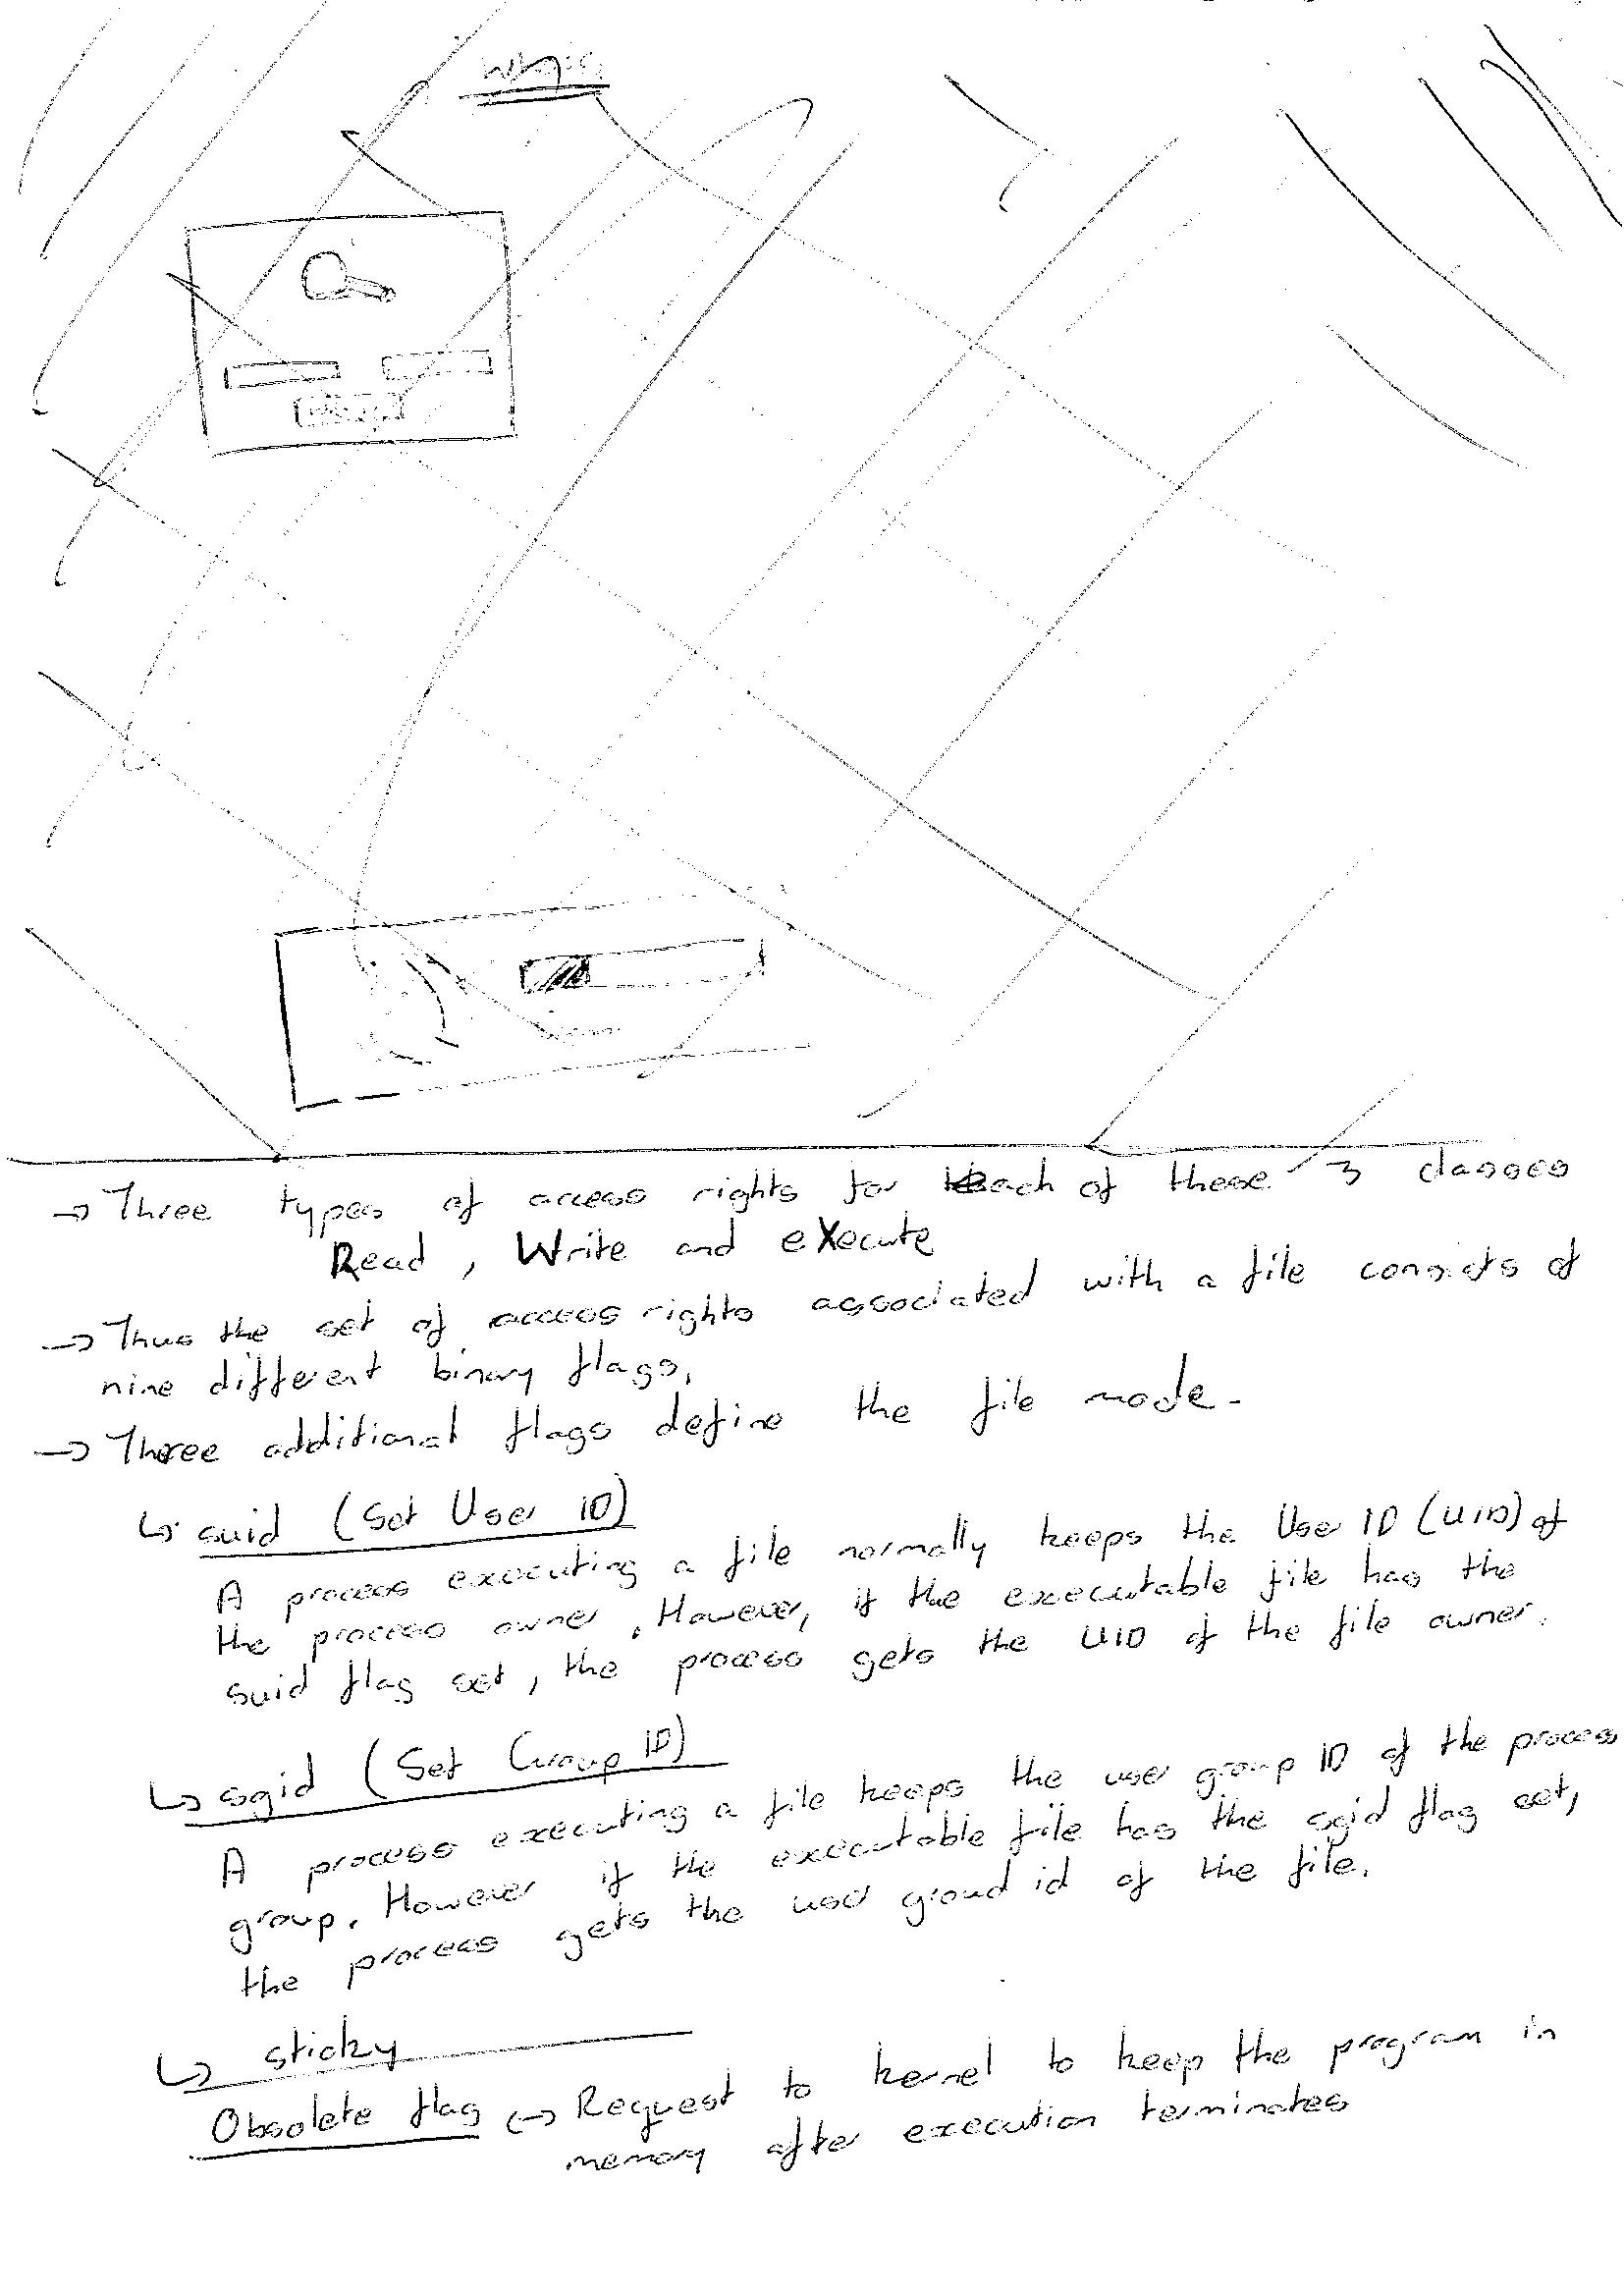 → Three types of access rights for each of these 3 classes
Read, Write and eXecute
→ Thus the set of access rights associated with a file consists of
nine different binary flags.
→ Three additional flags define the file mode.
↳ suid (Set User ID)
A process executing a file normally keeps the Use ID (UID) of
the process owner. However, if the executable file has the
suid flag set, the process gets the UID of the file owner.
↳ sgid (Set Group ID)
A process executing a file keeps the user group ID of the process
group. However if the executable file has the sgid flag set,
the process gets the user groud id of the file.
↳ sticky
Obsolete flag ↪ Request to kernel to keep the program in
memory after execution terminates